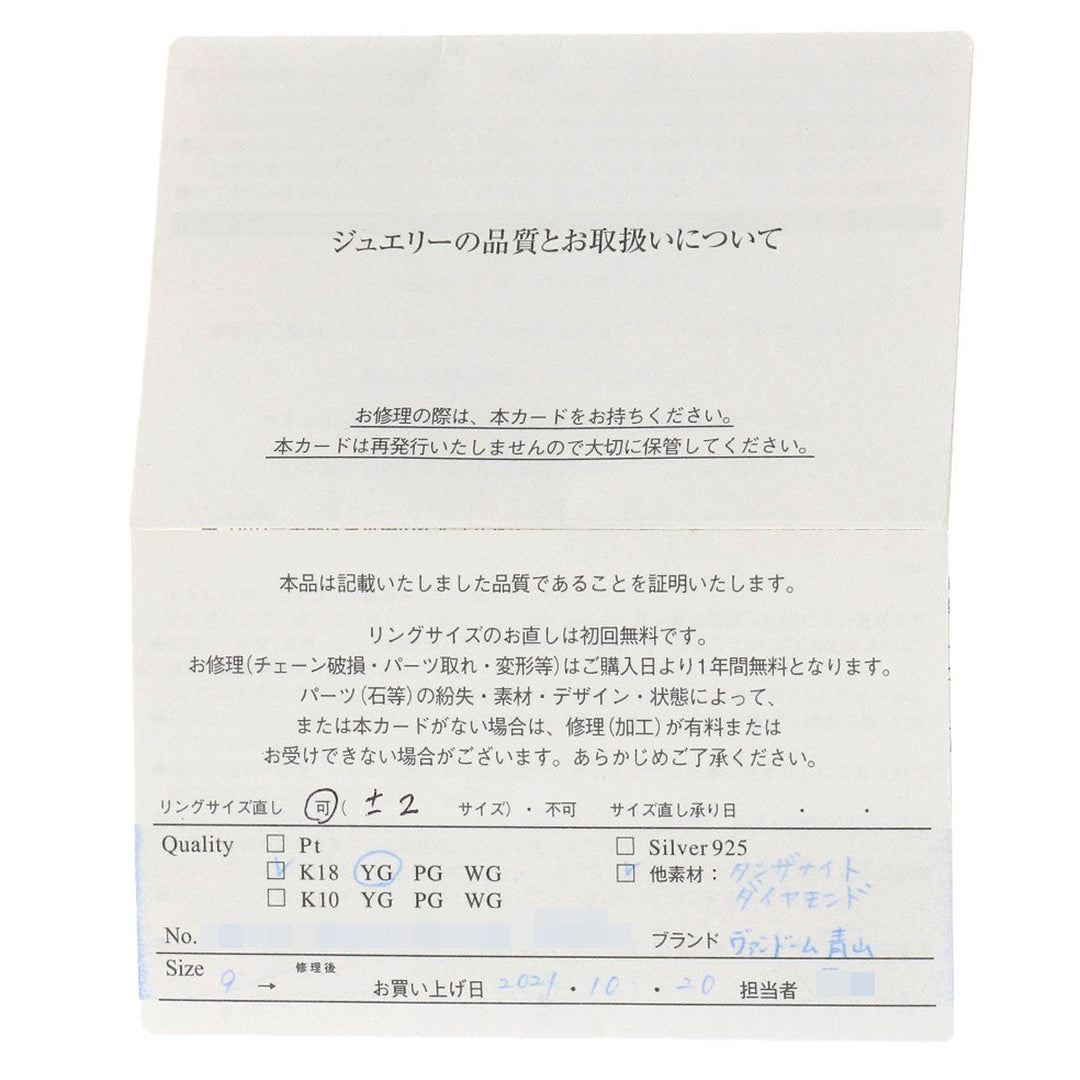 ジュエリーの品質とお取扱いについて
お修理の際は、本カードをお持ちください。
本カードは再発行いたしませんので大切に保管してください。
本品は記載いたしました品質であることを証明いたします。
リングサイズのお直しは初回無料です。
お修理(チェーン破損・パーツ取れ・変形等)はご購入日より1年間無料となります。
パーツ(石等)の紛失・素材・デザイン・状態によって、
または本カードがない場合は、修理(加工)が有料または
お受けできない場合がございます。あらかじめご了承ください。
リングサイズ直し 可 ( ±2 サイズ)・ 不可 サイズ直し承り日 ・ ・
Quality □ Pt □ Silver925
☑ K18 YG PG WG ☑ 他素材: タンザナイト
ダイヤモンド
□ K10 YG PG WG
No. ブランド ヴァンドーム青山
Size 9 → 修理後 お買い上げ日 2021 ・ 10 ・ 20 担当者